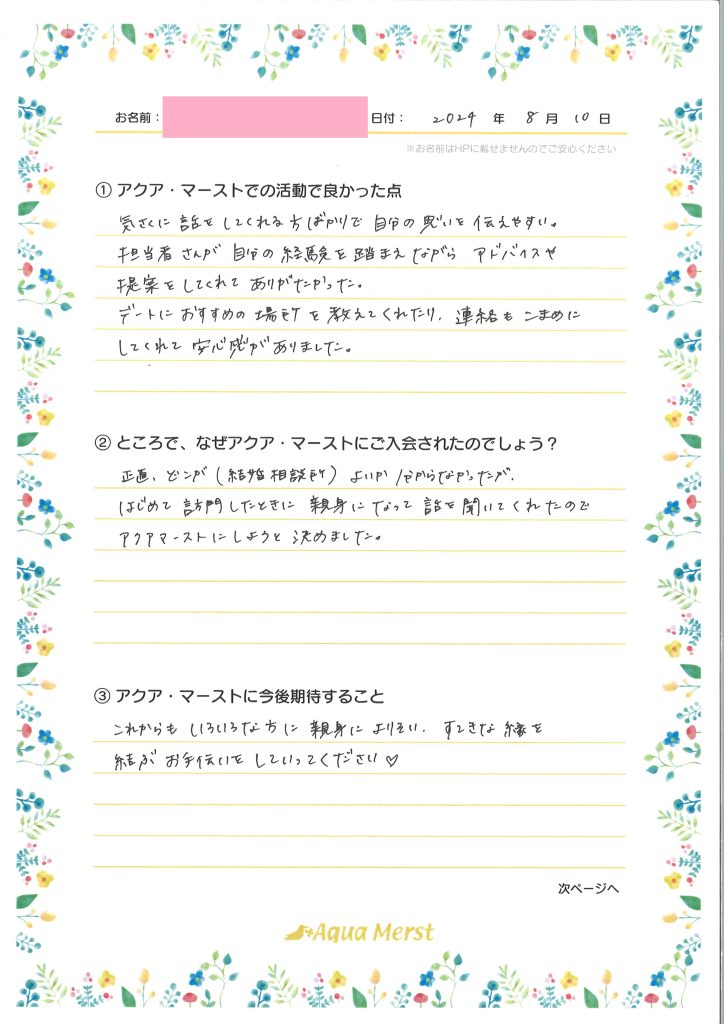 お名前: 日付: 2024 年 8 月 10 日
※お名前はHPに載せませんのでご安心ください
① アクア・マーストでの活動で良かった点
気さくに話をしてくれる方ばかりで自分の思いを伝えやすい。
担当者さんが自分の経験を踏まえながらアドバイスや
提案をしてくれてありがたかった。
デートにおすすめの場所を教えてくれたり、連絡もこまめに
してくれて安心感がありました。
② ところで、なぜアクア・マーストにご入会されたのでしょう？
正直、どこが(結婚相談所)よいか分からなかったが、
はじめて訪問したときに親身になって話を聞いてくれたので
アクアマーストにしようと決めました。
③ アクア・マーストに今後期待すること
これからもいろいろな方に親身によりそい、すてきな縁を
結ぶお手伝いをしていってください♡
次ページへ
Aqua Merst